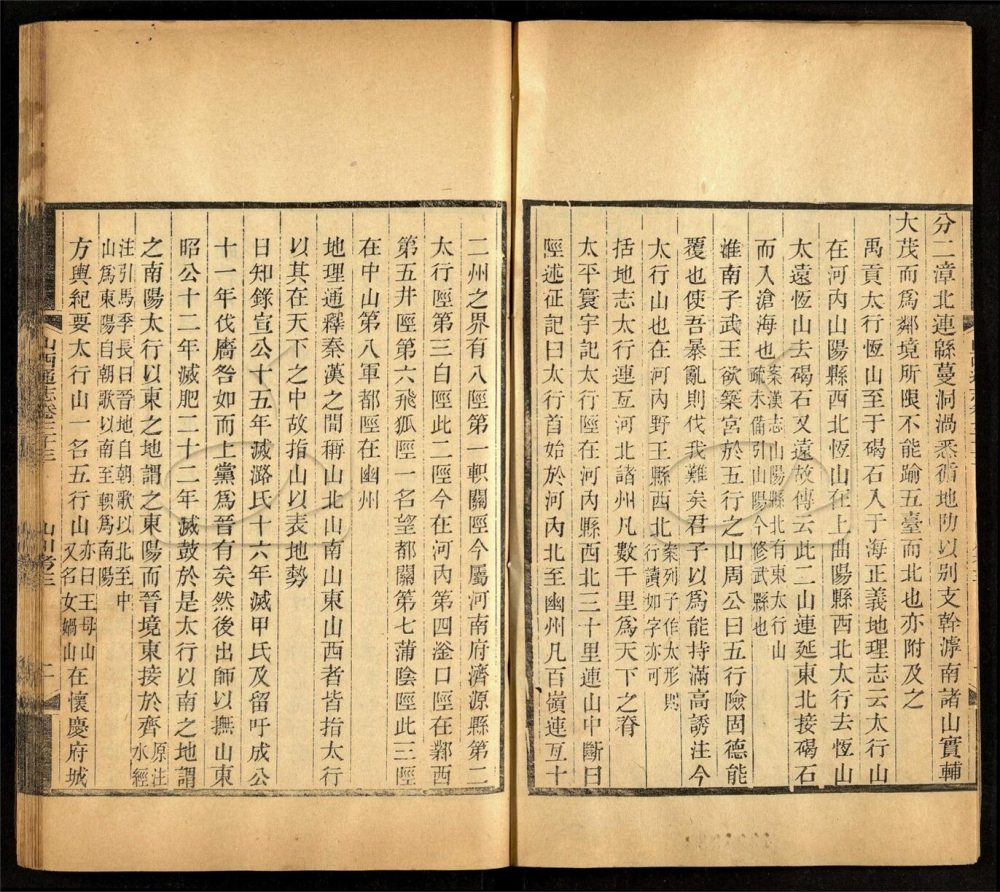 分二漳北連緜蔓洞渦悉循地阞以別支幹滹南諸山實輔
大茂而爲鄰境所限不能踰五臺而北也亦附及之
禹貢太行恆山至于碣石入于海正義地理志云太行山
在河内山陽縣西北恆山在上曲陽縣西北太行去恆山
太遠恆山去碣石又遠故傳云此二山連延東北接碣石
而入滄海也案漢志山陽縣北有東太行山
疏未備引山陽今修武縣也
淮南子武王欲築宮於五行之山周公曰五行險固德能
覆也使吾暴亂則伐我難矣君子以爲能持滿高誘注今
太行山也在河内野王縣西北案列子作太形則
行讀如字亦可
括地志太行山連亙河北諸州凡數千里爲天下之脊
太平寰宇記太行陘在河内縣西北三十里連山中斷曰
陘述征記曰太行首始於河内北至幽州凡百嶺連亙十
二州之界有八陘第一軹關陘今屬河南府濟源縣第二
太行陘第三白陘此二陘今在河内第四滏口陘在鄴西
第五井陘第六飛狐陘一名望都關第七蒲陰陘此三陘
在中山第八軍都陘在幽州
地理通釋秦漢之間稱山北山南山東山西者皆指太行
以其在天下之中故指山以表地勢
日知錄宣公十五年滅潞氏十六年滅甲氏及留吁成公
十一年伐廧咎如而上黨爲晉有矣然後出師以撫山東
昭公十二年滅肥二十二年滅鼓於是太行以南之地謂
之南陽太行以東之地謂之東陽而晉境東接於齊原注
水經
注引馬季長曰晉地自朝歌以北至中
山爲東陽自朝歌以南至軹爲南陽
方輿紀要太行山一名五行山亦曰王母山
又名女媧山在懷慶府城
山西通志卷三十三
山川考三